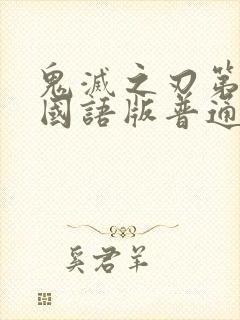 鬼滅之刃第
國語版普通
奚君羊